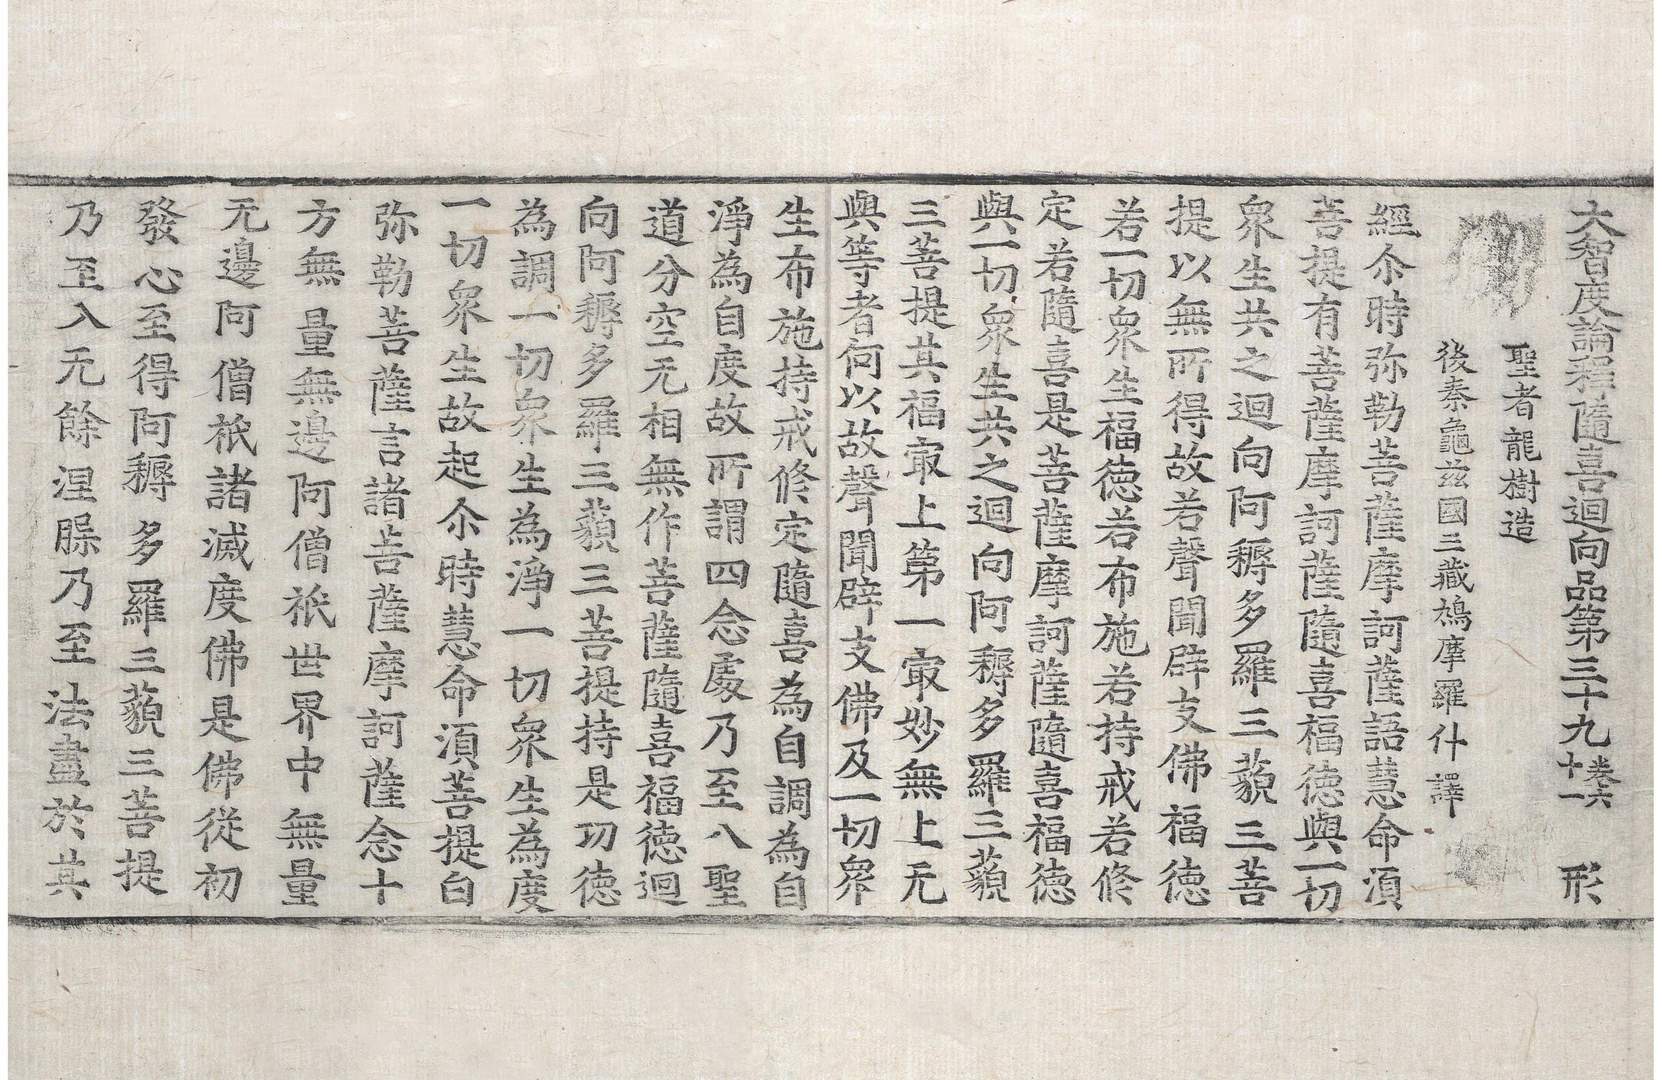 大智度論釋隨喜迴向品第三十九卷六十一　形
聖者龍樹造
後秦龜玆國三藏鳩摩羅什譯
經尒時弥勒菩薩摩訶薩語慧命湏
菩提有菩薩摩訶薩隨喜福徳與一切
衆生共之迴向阿耨多羅三藐三菩
提以無所得故若聲聞辟支佛福徳
若一切衆生福徳若布施若持戒若修
定若隨喜是菩薩摩訶薩隨喜福徳
與一切衆生共之迴向阿耨多羅三藐
三菩提其福冣上第一冣妙無上无
與等者何以故聲聞辟支佛及一切衆
生布施持戒修定隨喜為自調為自
淨為自度故所謂四念處乃至八聖
道分空无相無作菩薩隨喜福徳迴
向阿耨多羅三藐三菩提持是功徳
為調一切衆生為淨一切衆生為度
一切衆生故起尒時慧命湏菩提白
弥勒菩薩言諸菩薩摩訶薩念十
方無量無邊阿僧祇世界中無量
无邊阿僧祇諸滅度佛是佛従初
發心至得阿耨多羅三藐三菩提
乃至入无餘涅槃乃至法盡於其